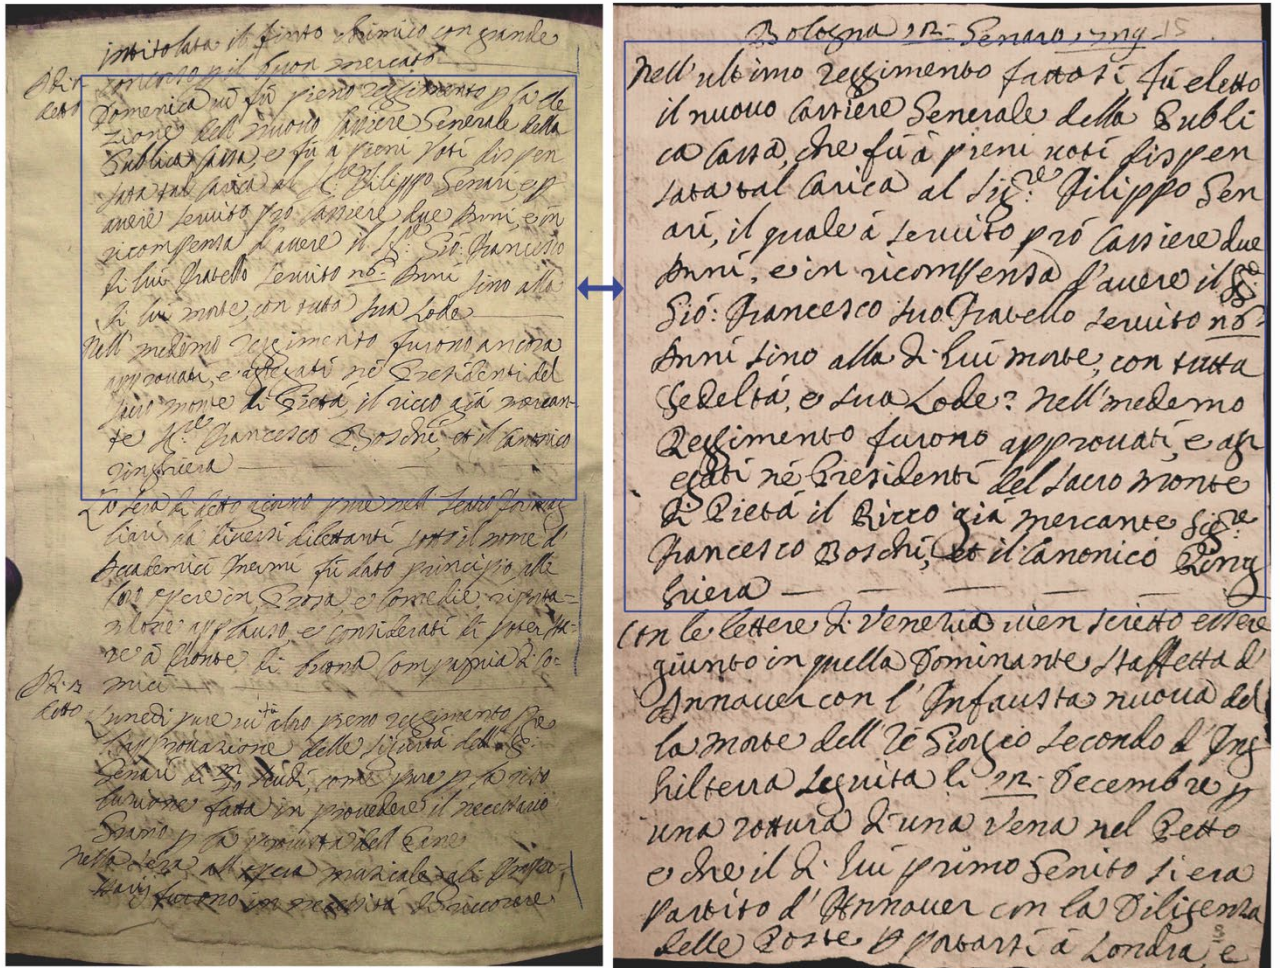 intitolata il finto chimico con grande
concorso p il buon mercato
Domenica fù pieno reggimento p la ele
zione dell nuovo Cassiere Generale della
Publica Cassa, e fù à pieni voti dispen
sata tal carica al Filippo Senari, e p
avere servito prò Cassiere due Anni, e in
ricompensa d'avere il Gio: Francesco
di lui Fratello servito Anni sino alla
di lui morte, con tutta sua Lode
Nell' medemo reggimento furono ancora
approuati, e aggregati nè Presidenti del
sacro monte di Pietà, il ricco già mercan-
te Francesco Boschi, et il Canonico
ringhiera
La sera di detto giorno pure nell Teatro Formag
liari da diversi dilettanti sotto il nome d'
Accademici fù dato principio alle
loro opere in Prosa, e Comedie, riporta=
applauso, e considerati di poter sta-
re à fronte di buona Compagnia di Co-
mici
detto
Lunedì pure altro pieno reggimento p
l'approuazione delle sigurtà dell
Senari di scudi, come pure p la riso
luzione fatta in prouedere il necessario
Grano p la prouista dell Pane
nella sera all'opera musicale
furono in necessità di riccorrere
Bologna Genaro 15
Nell'ultimo reggimento fattosi, fù eletto
il nuovo Cassiere Generale della Publi
ca Cassa, che fù à pieni voti dispen
sata tal Carica al Sig.re Filippo Sen
ari, il quale à servito prò Cassiere due
Anni, e in ricompensa d'avere il Sig.e
Gio: Francesco suo Fratello servito
Anni sino alla di lui morte, con tutta
Fedeltà, e sua Lode: Nell'medemo
Reggimento furono approuati, e agr
egati nè Presidenti del sacro monte
di Pietà il Ricco gia mercante Sig.re
Francesco Boschi, et il Canonico Ring
hiera
Con le lettere di Venezia vien scritto essere
giunto in quella Dominante Staffetta d'
Annauer con l'Infausta nuova del
la morte dell'Rè Giorgio secondo d'Ing
hilterra seguita li Decembre p
una rottura di una Vena nel Petto
e che il di lui primo Genito si era
partito d'Annauer con la Diligenza
delle Poste p portarsi à Londra, e